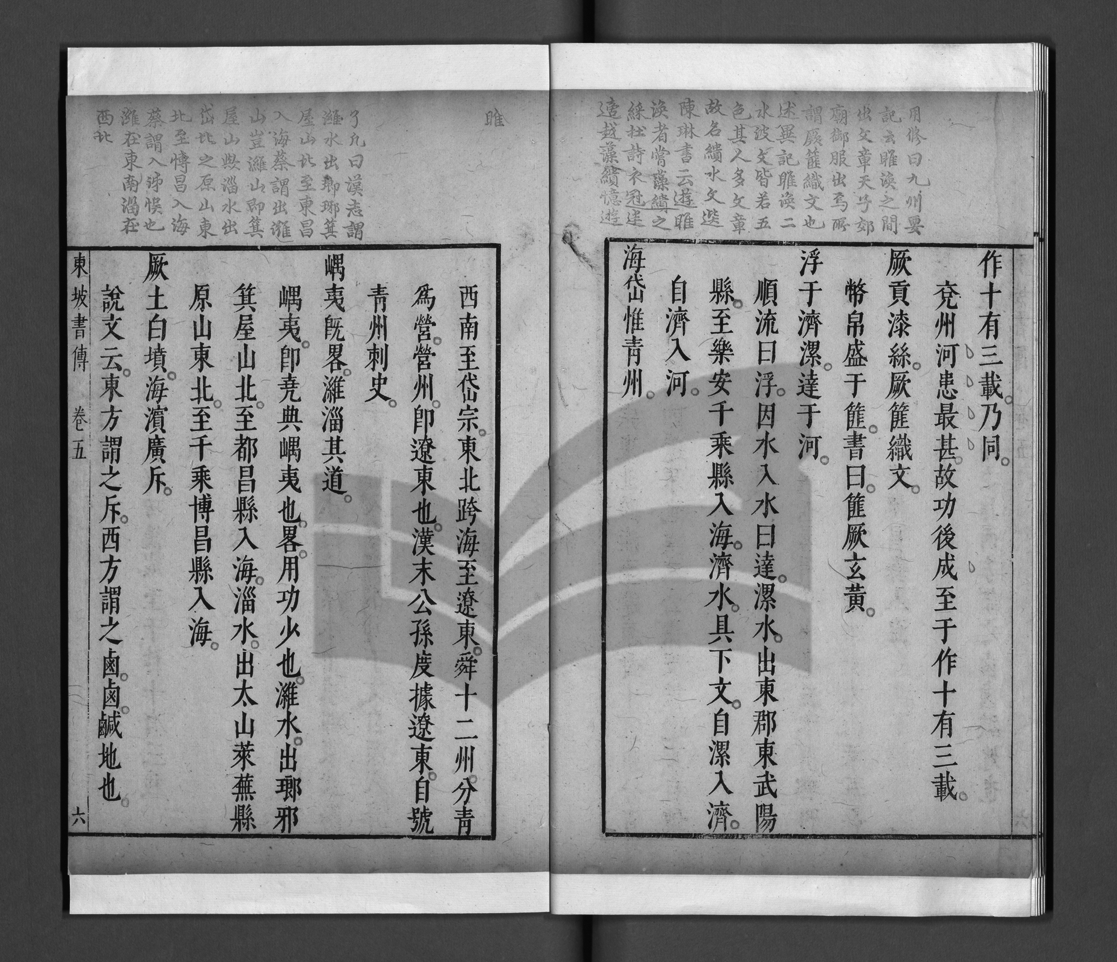 用修曰九州要
記云睢渙之間
出文章天子郊
廟御服出焉所
謂厥篚織文也
述異記睢渙二
水波文皆若五
色其人多文章
故名繢水文選
陳琳書云遊睢
渙者嘗藻繢之
綵杜詩衣冠
遠遊藻繢憶遊
睢
作十有三載。乃同。
兗州河患最甚。故功後成至于作十有三載。
厥貢漆絲。厥篚織文。
幣帛盛于篚。書曰。篚厥玄黃。
浮于濟漯。達于河。
順流曰浮。因水入水曰達。漯水。出東郡東武陽
縣。至樂安千乘縣入海。濟水。具下文。自漯入濟。
自濟入河。
海岱惟青州。
西南至岱宗。東北跨海至遼東。舜十二州。分青
爲營。營州。卽遼東也。漢末公孫度據遼東。自號
青州刺史。
嵎夷旣畧。濰淄其道。
嵎夷。卽堯典嵎夷也。畧。用功少也。濰水。出瑯邪
箕屋山北。至都昌縣入海。淄水。出太山萊蕪縣
原山東北。至千乘博昌縣入海。
厥土白墳。海濱廣斥。
說文云。東方謂之斥。西方謂之鹵。鹵。鹹地也。
東坡書傳 卷五 六
了凡曰漢志謂
濰水出瑯瑯箕
屋山北至東昌
入海蔡謂出濰
山豈濰山即箕
屋山歟淄水出
岱北之原山東
北至博昌入海
蔡謂入泲悞也
濰在東南淄在
西北